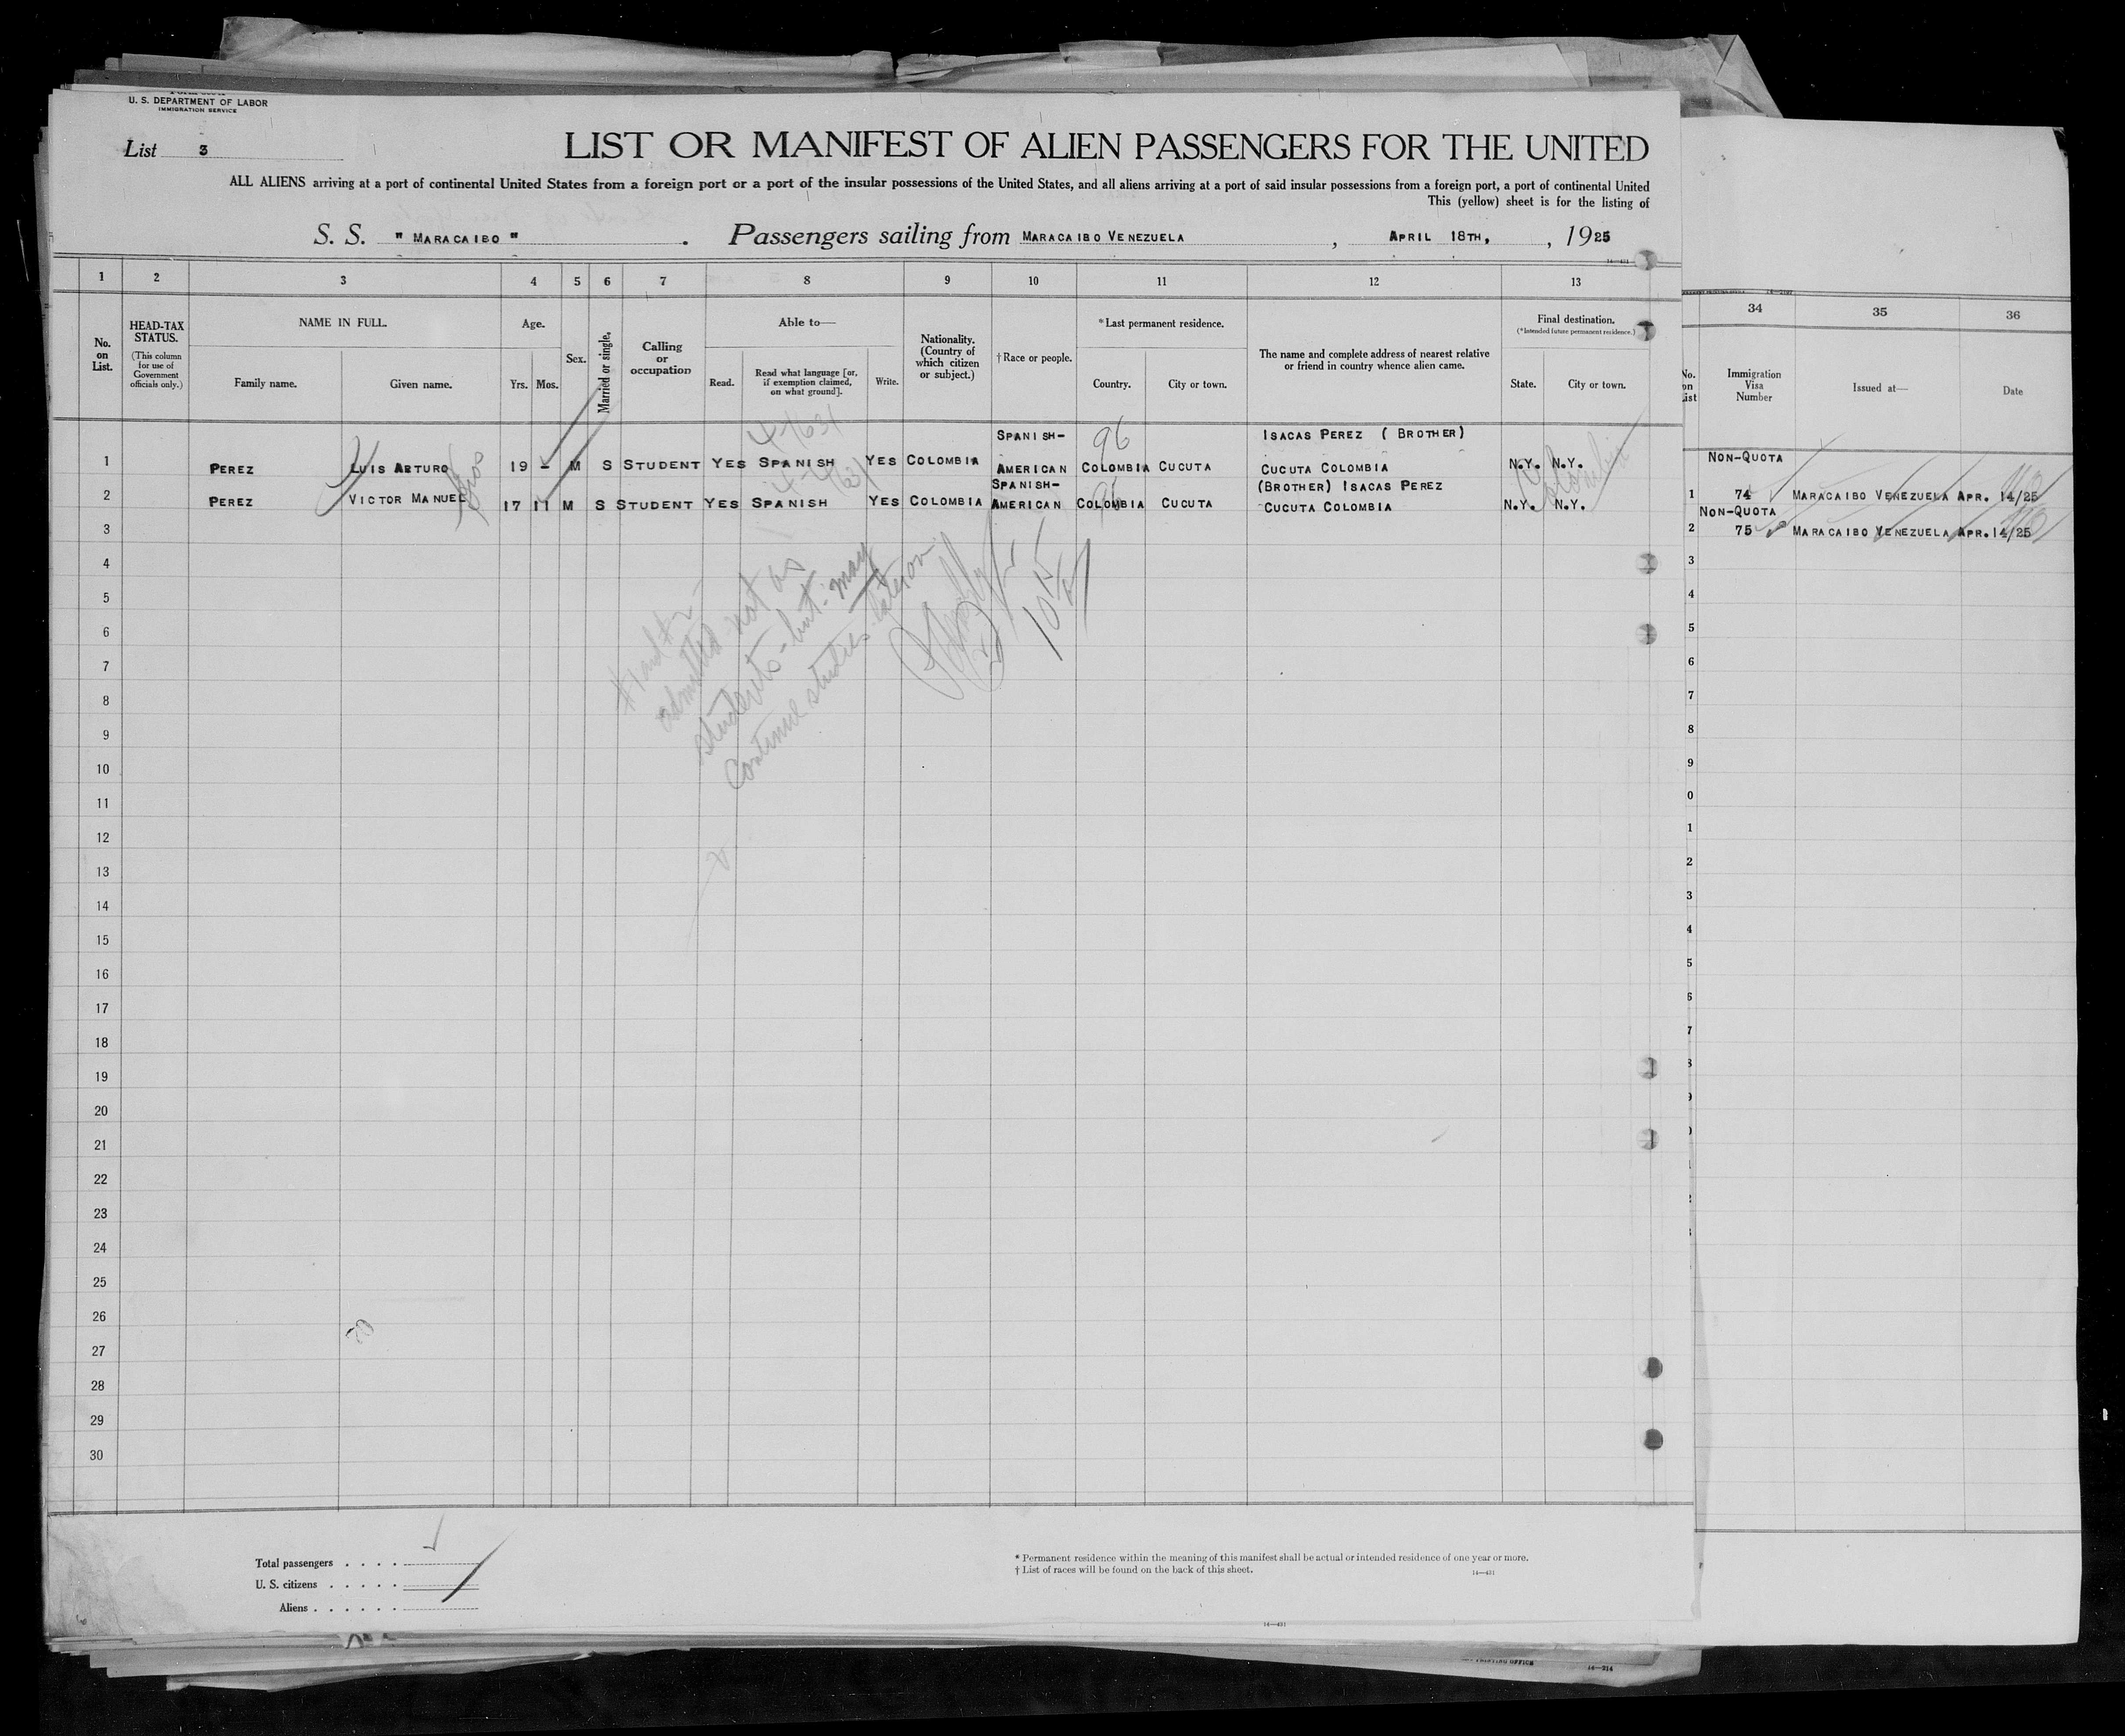 U. S. DEPARTMENT OF LABOR
IMMIGRATION SERVICE
List 3
LIST OR MANIFEST OF ALIEN PASSENGERS FOR THE UNITED
ALL ALIENS arriving at a port of continental United States from a foreign port or a port of the insular possessions of the United States, and all aliens arriving at a port of said insular possessions from a foreign port, a port of continental United
This (yellow) sheet is for the listing of
S. S. "MARACAIBO". Passengers sailing from MARACAIBO VENEZUELA, APRIL 18TH, , 1925
14—431
1 2 3 4 5 6 7 8 9 10 11 12 13
No. on List.
HEAD-TAX STATUS.
(This column for use of Government officials only.)
NAME IN FULL.
Family name. Given name.
Age.
Yrs. Mos.
Sex.
Married or single.
Calling or occupation
Able to—
Read. Read what language [or, if exemption claimed, on what ground]. Write.
Nationality. (Country of which citizen or subject.)
†Race or people.
*Last permanent residence.
Country. City or town.
The name and complete address of nearest relative or friend in country whence alien came.
Final destination.
(*Intended future permanent residence.)
State. City or town.
34 35 36
No. on List
Immigration Visa Number
Issued at—
Date
1 PEREZ LUIS ARTURO 19 - M S STUDENT YES SPANISH YES COLOMBIA SPANISH-AMERICAN COLOMBIA CUCUTA ISACAS PEREZ (BROTHER) CUCUTA COLOMBIA N.Y. N.Y.
2 PEREZ VICTOR MANUEL 17 11 M S STUDENT YES SPANISH YES COLOMBIA SPANISH-AMERICAN COLOMBIA CUCUTA (BROTHER) ISACAS PEREZ CUCUTA COLOMBIA N.Y. N.Y.
96
96
Colombia
NON-QUOTA
1 74 MARACAIBO VENEZUELA APR. 14/25
NON-QUOTA
2 75 MARACAIBO VENEZUELA APR. 14/25
admitted not as
students - but may
continue studies later on
3
4
5
6
7
8
9
10
11
12
13
14
15
16
17
18
19
20
21
22
23
24
25
26
27
28
29
30
Total passengers . . . .
U. S. citizens . . . . .
Aliens . . . . . .
* Permanent residence within the meaning of this manifest shall be actual or intended residence of one year or more.
† List of races will be found on the back of this sheet.
14—431
14—431